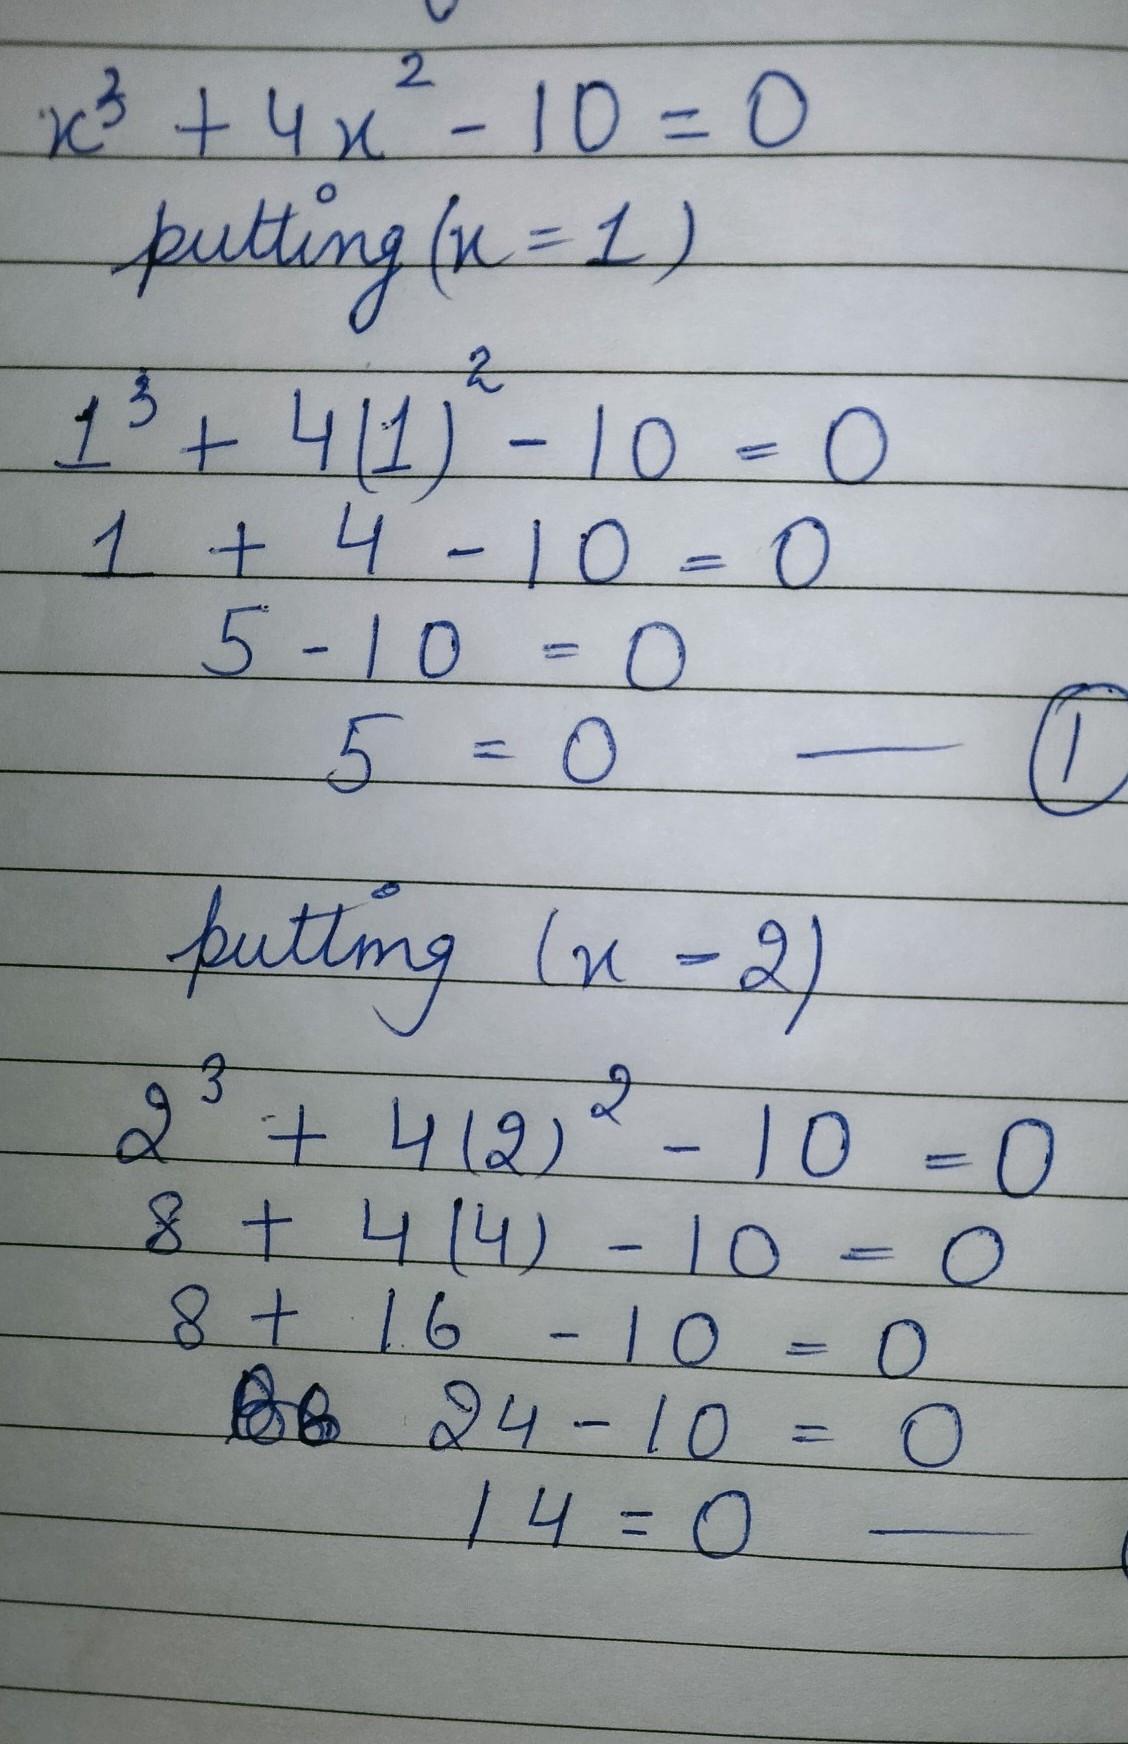 x³ + 4x² - 10 = 0
putting (x = 1)
1³ + 4(1)² - 10 = 0
1 + 4 - 10 = 0
5 - 10 = 0
5 = 0 — ①
putting (x - 2)
2³ + 4(2)² - 10 = 0
8 + 4(4) - 10 = 0
8 + 16 - 10 = 0
24 - 10 = 0
14 = 0 —